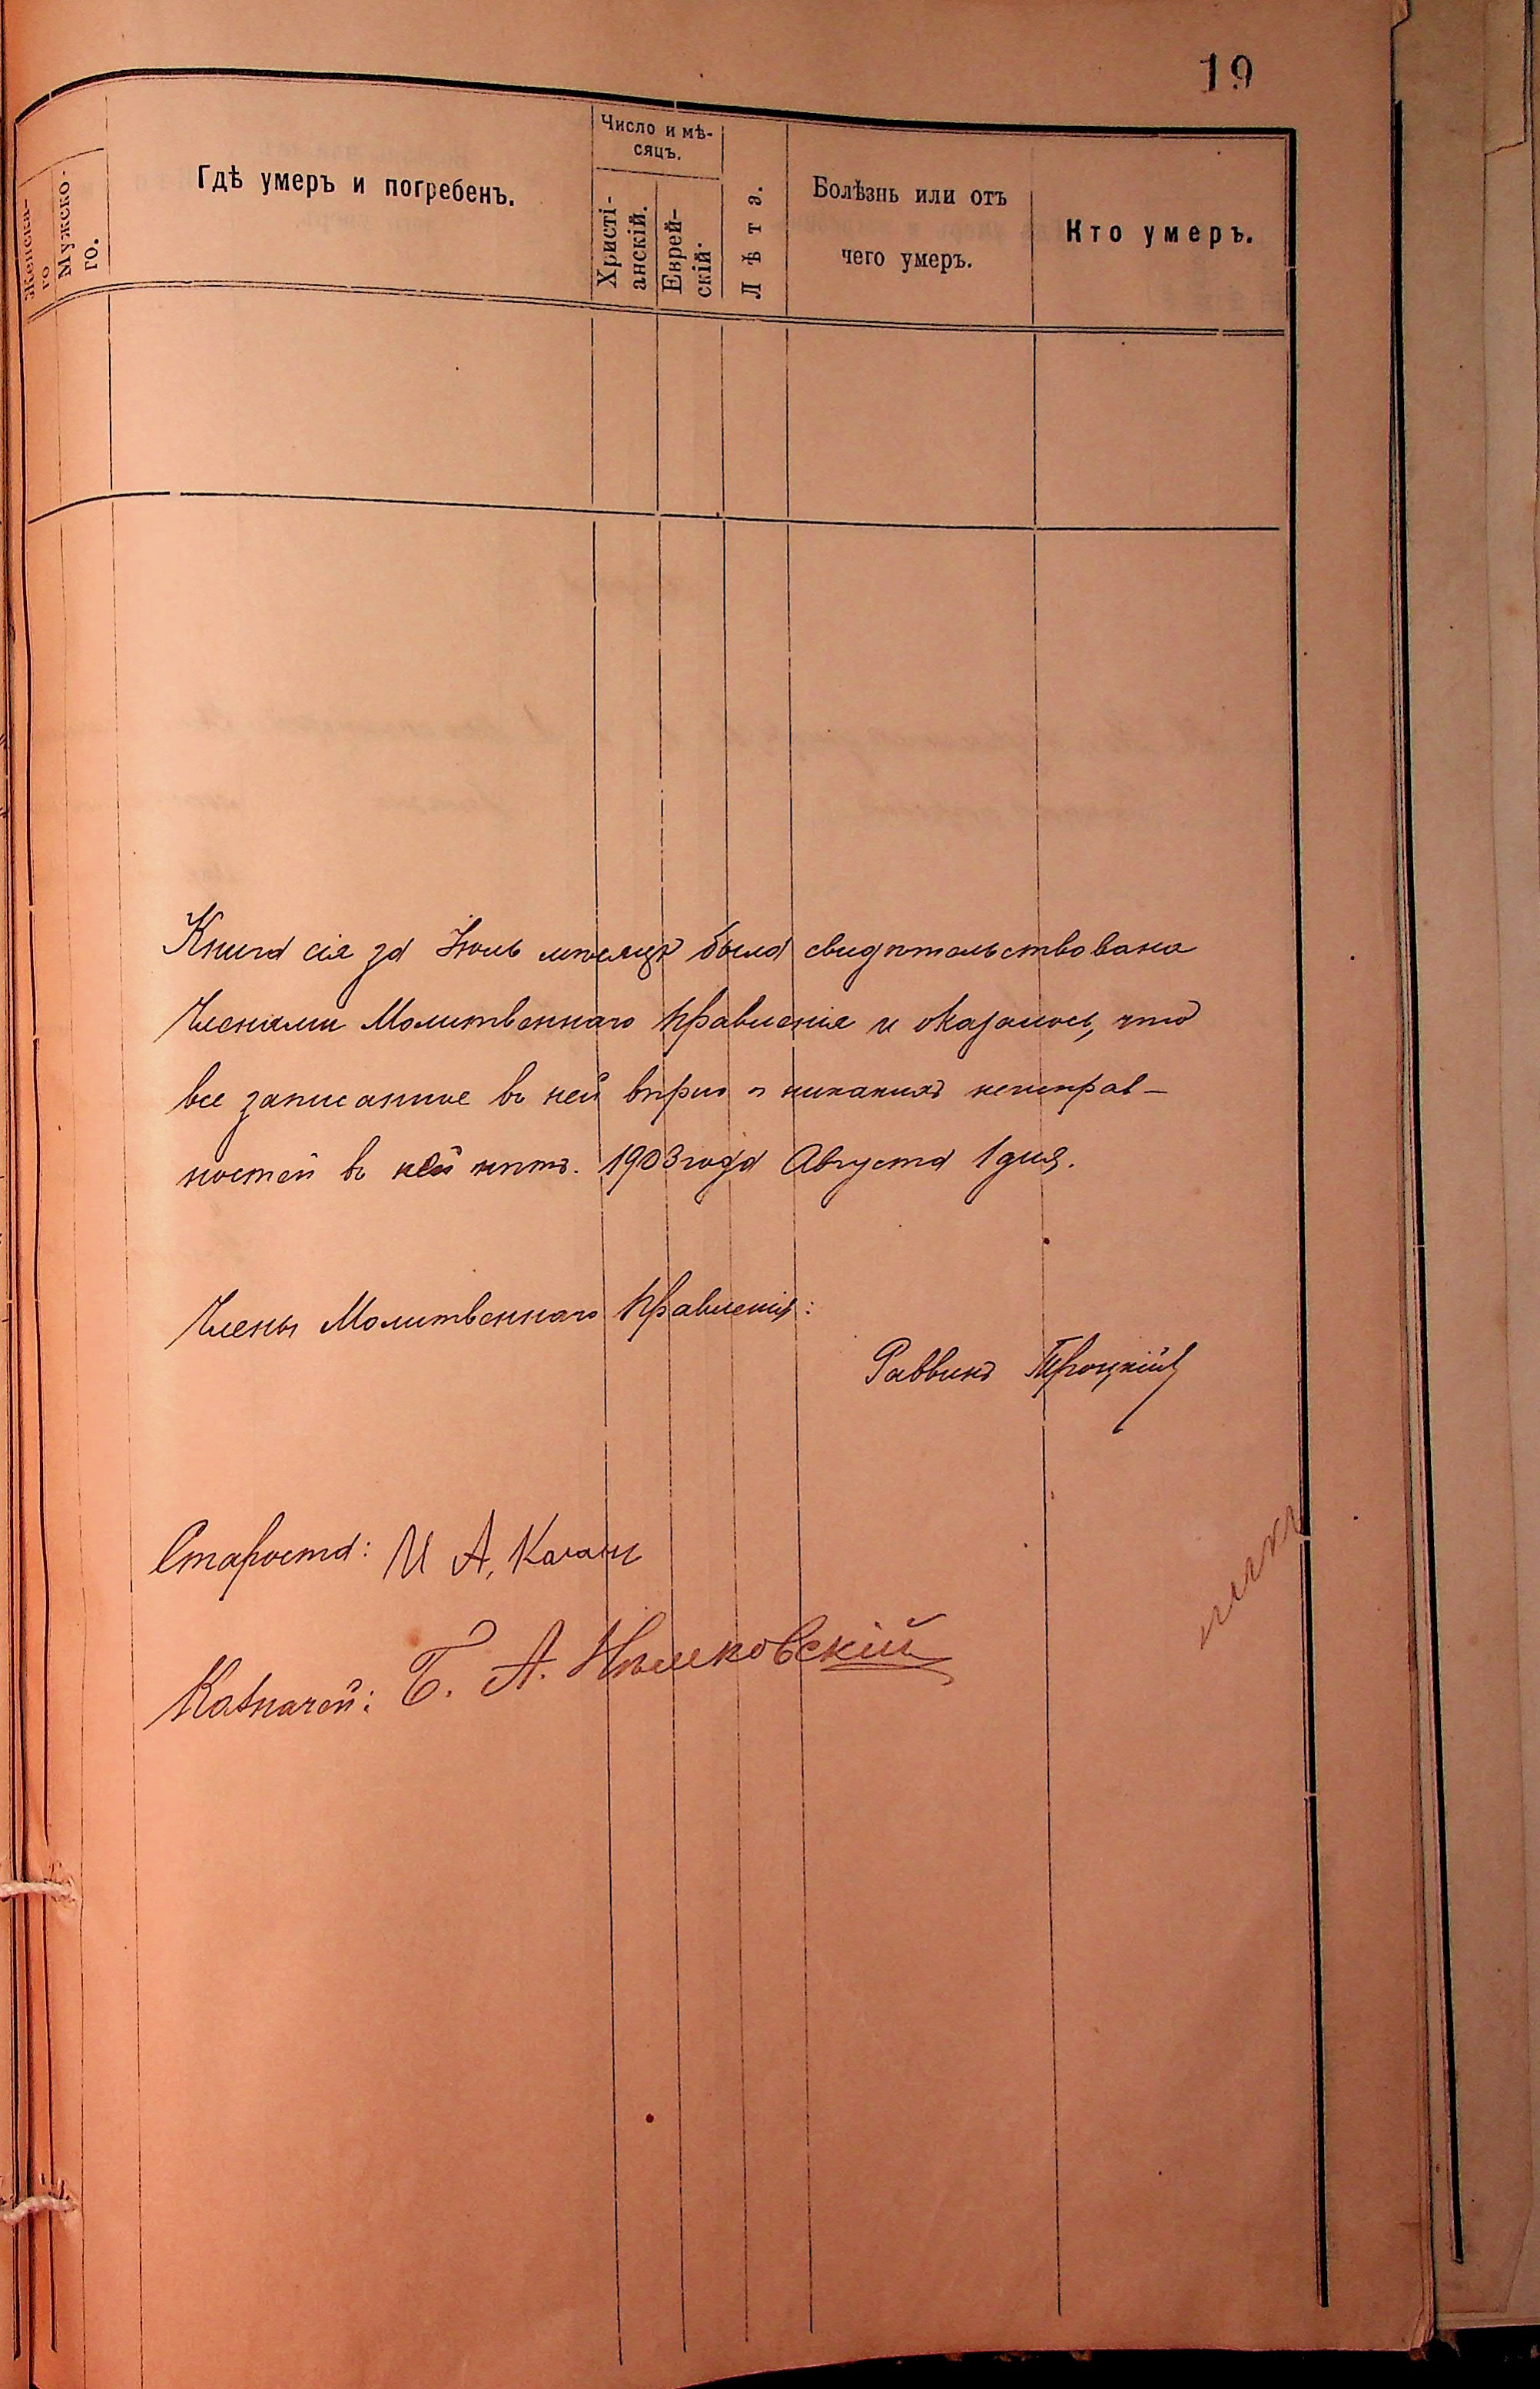 19
Женска-
го
Мужско-
го.
Гдѣ умеръ и погребенъ.
Число и мѣ-
сяцъ.
Христі-
анскій.
Еврей-
скій.
Лѣта.
Болѣзнь или отъ
чего умеръ.
Кто умеръ.
Книга сія за Іюль мѣсяцъ была свидѣтельствована
Членами Молитвеннаго Правленія и оказалось, что
все записанное въ ней вѣрно и никакихъ неисправ-
ностей въ ней нѣтъ. 1903 года Августа 1 дня.
Члены Молитвеннаго Правленія:
Раввинъ Троцкій
Староста: И А. Каганъ
Казначей: Б. А.